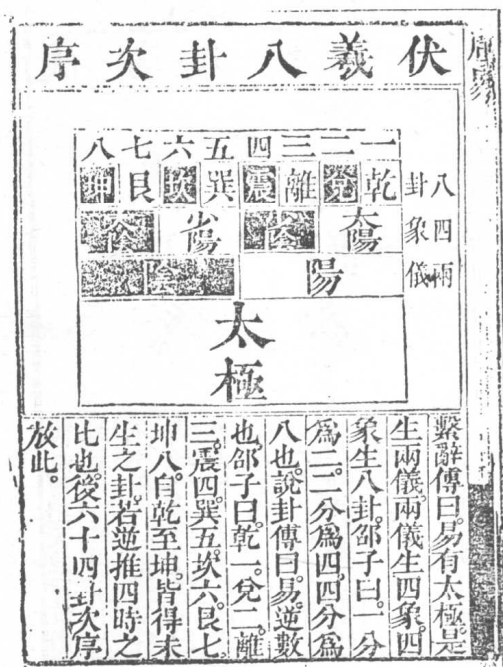 伏羲八卦次序
一二三四五六七八
八卦
乾兌離震巽坎艮坤
四象
太陽
少陽
兩儀
陽
陰
太極
繫辭傳曰。易有太極。是
生兩儀。兩儀生四象。四
象生八卦。邵子曰。一分
爲二。二分爲四。四分爲
八也。說卦傳曰。易。逆數
也。邵子曰。乾一。兌二。離
三。震四。巽五。坎六。艮七。
坤八。自乾至坤。皆得未
生之卦。若逆推四時之
比也。後六十四卦次序
放此。